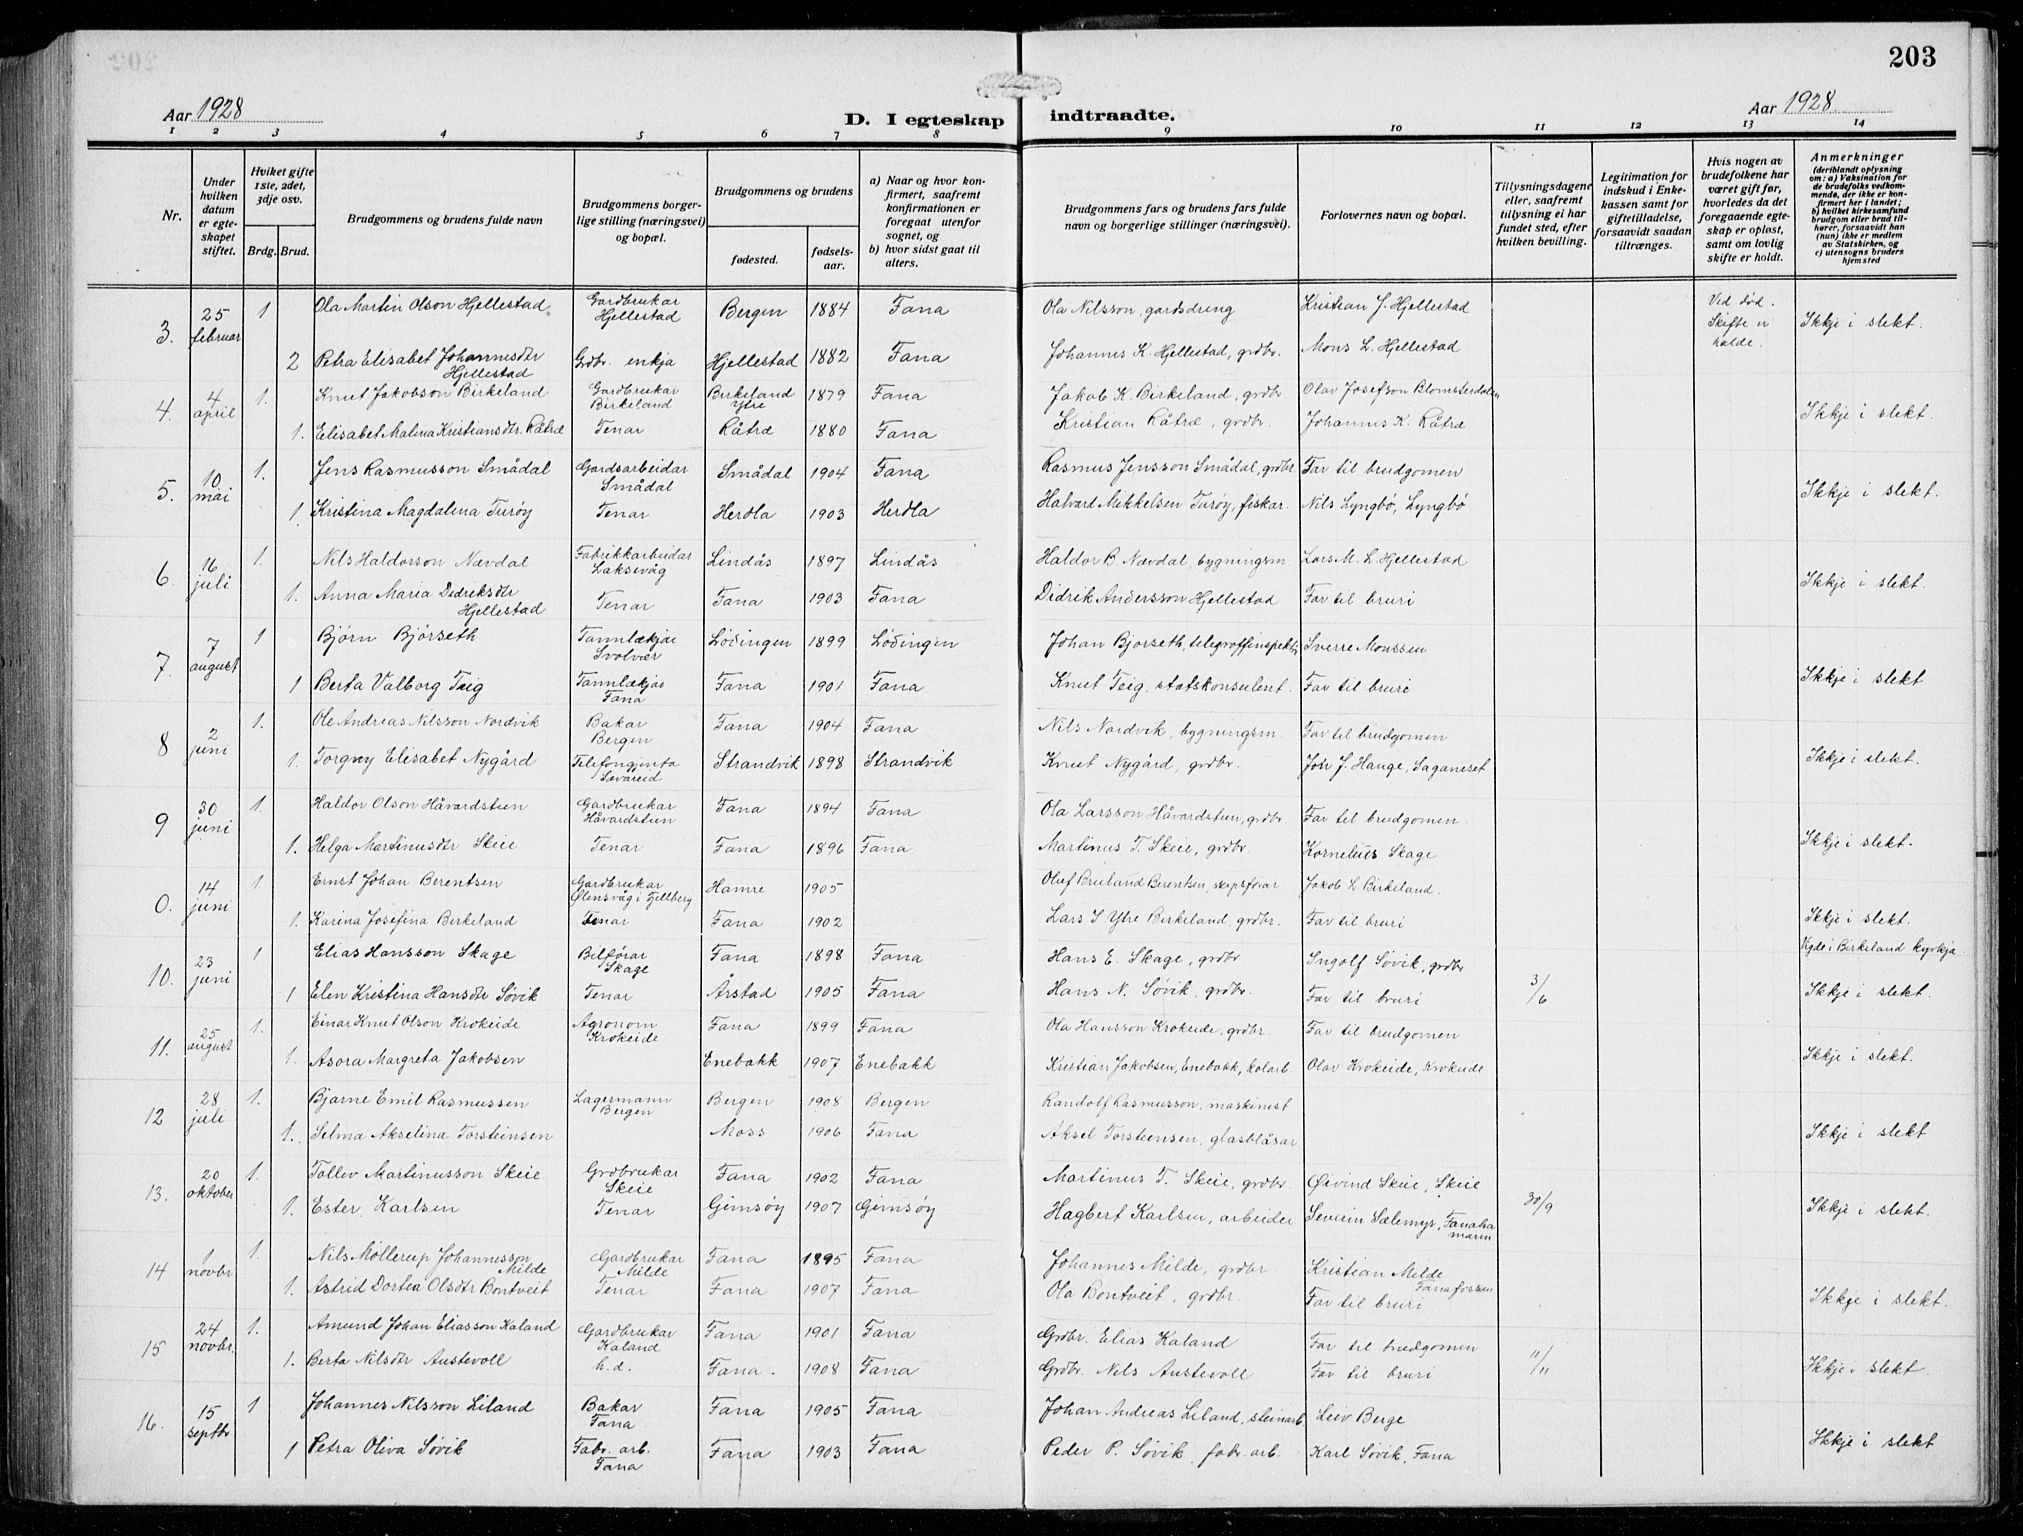 203
Aar 1928
D. I egteskap indtraadte.
Aar 1928
1 2 3 4 5 6 7 8 9 10 11 12 13 14
Nr.
Under hvilken datum er egteskapet stiftet.
Hvilket gifte 1ste, 2det, 3dje osv.
Brdg. Brud.
Brudgommens og brudens fulde navn
Brudgommens borgerlige stilling (næringsvei) og bopæl.
Brudgommens og brudens
fødested.
fødselsaar.
a) Naar og hvor konfirmert, saafremt konfirmationen er foregaat utenfor sognet, og
b) hvor sidst gaat til alters.
Brudgommens fars og brudens fars fulde navn og borgerlige stillinger (næringsvei).
Forlovernes navn og bopæl.
Tillysningsdagene eller, saafremt tillysning ei har fundet sted, efter hvilken bevilling.
Legitimation for indskud i Enkekassen samt for giftetilladelse, forsaavidt saadan tiltrænges.
Hvis nogen av brudefolkene har været gift før, hvorledes da det foregaaende egteskap er opløst, samt om lovlig skifte er holdt.
Anmerkninger (deriblandt oplysning om: a) Vaksination for de brudefolks vedkommende, der ikke er konfirmert her i landet; b) hvilket kirkesamfund brudgom eller brud tilhører, forsaavidt han (hun) ikke er medlem av Statskirken, og c) utensogns bruders hjemsted
3. 25 februar 1 Ola Martin Olson Hjellestad Gardbrukar Hjellestad Bergen 1884 Fana Ola Nilsson, gardsdreng Kristian J. Hjellestad Ved død. Skifte er halde. Ikkje i slekt.
2 Petra Elisabet Johannesdtr Hjellestad Grdbr. enkja Hjellestad 1882 Fana Johannes K. Hjellestad, grdbr. Mons L. Hjellestad
4. 4 april 1. Knut Jakobson Birkeland Gardbrukar Birkeland Birkeland Ytre 1879 Fana Jakob K. Birkeland, grdbr. Olav Josefson Blomsterdalen
1. Elisabet Malena Kristiansdtr. Råtræ Tenar Råtræ 1880 Fana Kristian Råtræ, grdbr. Johannes K. Råtræ Ikkje i slekt.
5. 10 mai 1. Jens Rasmusson Smådal Gardsarbeidar Smådal Smådal 1904 Fana Rasmus Jensson Smådal, grdbr. Far til brudgomen
1. Kristina Magdalena Turøy Tenar Herdla 1903 Herdla Halvard Mikkelsen Turøy, fiskar. Nils Lyngbø, Lyngbø Ikkje i slekt.
6. 16 juli 1. Nils Haldorson Nævdal Fabrikkarbeidar Laksevåg Lindås 1897 Lindås Haldor B. Nævdal, bygningsm Lars M. L. Hjellestad
1. Anna Maria Didriksdtr Hjellestad Tenar Fana 1903 Fana Didrik Andersson Hjellestad Far til bruri Ikkje i slekt.
7. 7 august 1 Bjørn Bjørseth Tannlækjar Svolvær Lödingen 1899 Lödingen Johan Bjørseth, telegraffinspektr Sverre Monssen
1 Berta Valborg Teig Tannlækjar Fana Fana 1901 Fana Knut Teig, statskonsulent. Far til bruri Ikkje i slekt
8 2 juni 1. Ole Andreas Nilsson Nordvik Bakar Bergen Fana 1904 Fana Nils Nordvik, bygningsm Far til brudgomen
1. Torgny Elisabet Nygård Telefongjenta Sævareid Strandvik 1898 Strandvik Knut Nygård, grdbr. Joh J. Hauge, Saganeset Ikkje i slekt.
9 30 juni 1. Haldor Olson Håvardstun Gardbrukar Håvardstun Fana 1894 Fana Ola Larsson Håvardstun, grdbr Far til brudgomen.
1. Helga Martinusdtr Skeie Tenar Fana 1896 Fana Martinus T. Skeie, grdbr. Kornelius Skage Ikkje i slekt.
0. 14 juni 1. Ernst Johan Berentsen Gardbrukar Ølensvåg i Fjellberg Hamre 1905 Oluf Bruland Berentsen, skipsförar Jakob L. Birkeland.
1. Karina Josefina Birkeland Tenar Fana 1902 Lars J Ytre Birkeland, grdbr. Far til bruri Ikkje i slekt.
10. 23 juni 1 Elias Hansson Skage Bilförar Skage Fana 1898 Fana Hans E. Skage, grdbr Ingolf Søvik, grdbr Vigde i Birkeland kyrkja.
1 Elen Kristina Hansdtr Søvik Tenar Årstad 1905 Fana Hans N. Søvik, grdbr. Far til bruri 3/6 Ikkje i slekt.
11. 25 august 1. Einar Knut Olson Krokeide Agronom Krokeide Fana 1899 Fana Ola Hansson Krokeide, grdbr. Far til brudgomen
1. Asora Margreta Jakobsen Enebakk 1907 Enebakk Kristian Jakobsen, Enebakk, kolarb. Olav Krokeide, Krokeide Ikkje i slekt.
12 28 juli 1. Bjarne Emil Rasmussen Lagermann Bergen Bergen 1908 Bergen Randolf Rasmusson, maskinist
1. Selma Akselina Torsteinsen Moss 1906 Fana Aksel Torsteinsen, glasblåsar Ikkje i slekt
13. 20 oktober 1. Tollev Martinusson Skeie Grdbrukar Skeie Fana 1902 Fana Martinus T. Skeie, grdbr. Øivind Skeie, Skeie
1. Ester Karlsen Tenar Gimsöy 1907 Gimsöy Hagbert Karlsen, arbeider Severin Sælemyr, Fanahamaren 30/9 Ikkje i slekt.
14 1 novbr 1. Nils Møllerup Johannesson Milde Gardbrukar Milde Fana 1895 Fana Johannes Milde, grdbr. Kristian Milde Fanafossen
1. Astrid Dortea Olsdtr Bontveit Tenar Fana 1907 Fana Ola Bontveit, grdbr. Far til bruri Ikkje i slekt.
15 24 novbr. 1. Amund Johan Eliasson Kaland Gardbrukar Kaland Fana 1901 Fana Grdbr. Elias Kaland Far til brudgomen
1. Berta Nilsdtr Austevoll h.d. Fana. 1908 Fana Grdbr. Nils Austevoll Far til bruri 11/11 Ikkje i slekt.
16. 15 septbr 1 Johannes Nilsson Liland Bakar Fana Fana 1905 Fana Johan Andreas Liland, steinarb. Leiv Berge
1 Petra Oliva Søvik Fabr. arb. Fana Fana 1903 Fana Peder P. Søvik, fabr. arb. Karl Søvik, Fana Ikkje i slekt